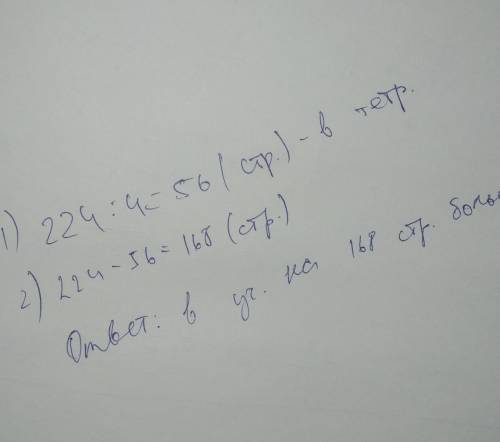 1) 224:4=56 (стр.) - в тетр.
2) 224-56=168 (стр.)
Ответ: в уч. на 168 стр. больш